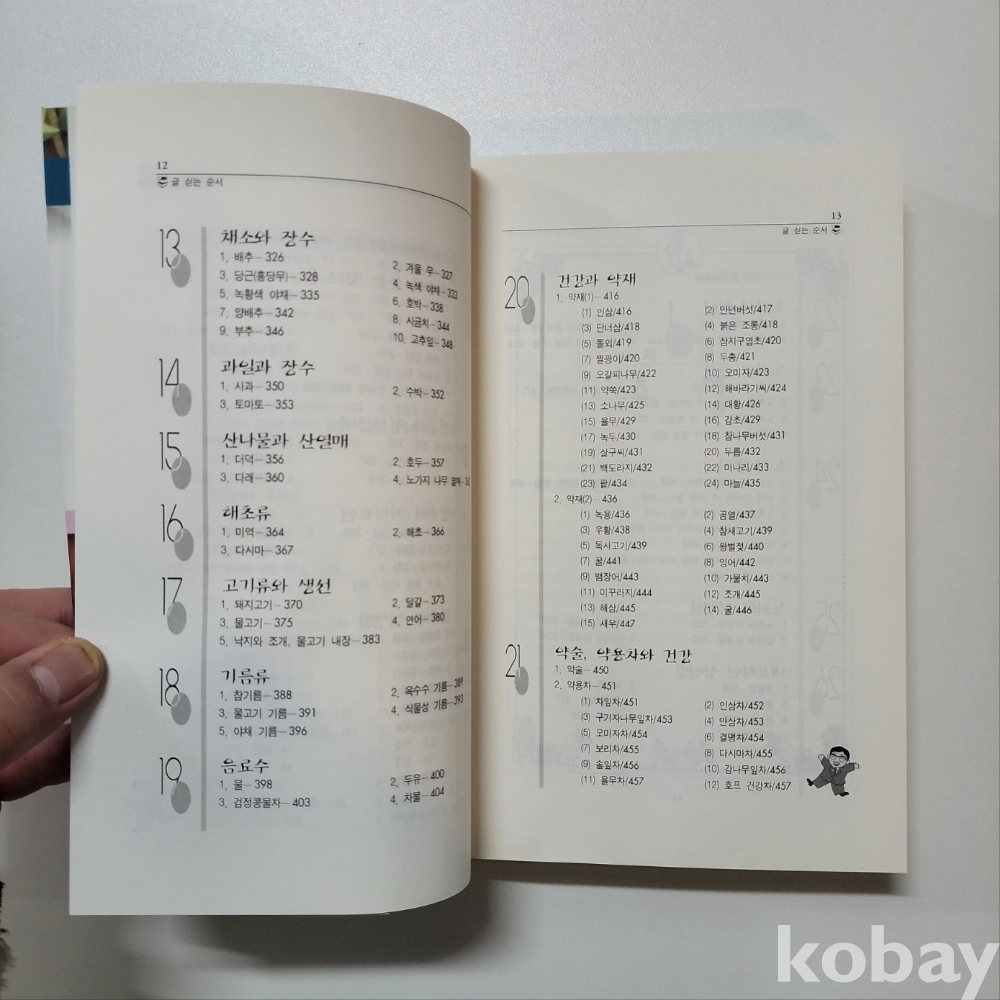 12
글 싣는 순서
13 채소와 장수
1. 배추-326 2. 겨울 무-327
3. 당근(홍당무)-328 4. 녹색 야채-333
5. 녹황색 야채-335 6. 호박-338
7. 양배추-342 8. 시금치-344
9. 부추-346 10. 고추잎-348
14 과일과 장수
1. 사과-350 2. 수박-352
3. 토마토-353
15 산나물과 산열매
1. 더덕-356 2. 호두-357
3. 다래-360 4. 노가지 나무 열매
16 해초류
1. 미역-364 2. 해초-366
3. 다시마-367
17 고기류와 생선
1. 돼지고기-370 2. 달걀-373
3. 물고기-375 4. 연어-380
5. 낙지와 조개, 물고기 내장-383
18 기름류
1. 참기름-388 2. 옥수수 기름-389
3. 물고기 기름-391 4. 식물성 기름-393
5. 야채 기름-396
19 음료수
1. 물-398 2. 두유-400
3. 검정콩물차-403 4. 차물-404
13
글 싣는 순서
20 건강과 약재
1. 약재(1)-416
(1) 인삼/416 (2) 만년버섯/417
(3) 단너삼/418 (4) 붉은 조롱/418
(5) 돌외/419 (6) 삼지구엽초/420
(7) 찔광이/420 (8) 두충/421
(9) 오갈피나무/422 (10) 오미자/423
(11) 약쑥/423 (12) 해바라기씨/424
(13) 소나무/425 (14) 대황/426
(15) 율무/429 (16) 감초/429
(17) 녹두/430 (18) 참나무버섯/431
(19) 살구씨/431 (20) 두릅/432
(21) 백도라지/432 (22) 미나리/433
(23) 팥/434 (24) 마늘/435
2. 약재(2)-436
(1) 녹용/436 (2) 곰열/437
(3) 우황/438 (4) 참새고기/439
(5) 독사고기/439 (6) 왕벌젖/440
(7) 꿀/441 (8) 잉어/442
(9) 뱀장어/443 (10) 가물치/443
(11) 미꾸라지/444 (12) 조개/445
(13) 해삼/445 (14) 굴/446
(15) 새우/447
21 약술, 약용차와 건강
1. 약술-450
2. 약용차-451
(1) 차잎차/451 (2) 인삼차/452
(3) 구기자나무잎차/453 (4) 만삼차/453
(5) 오미자차/454 (6) 결명차/454
(7) 보리차/455 (8) 다시마차/455
(9) 솔잎차/456 (10) 감나무잎차/456
(11) 율무차/457 (12) 호프 건강차/457
kobay